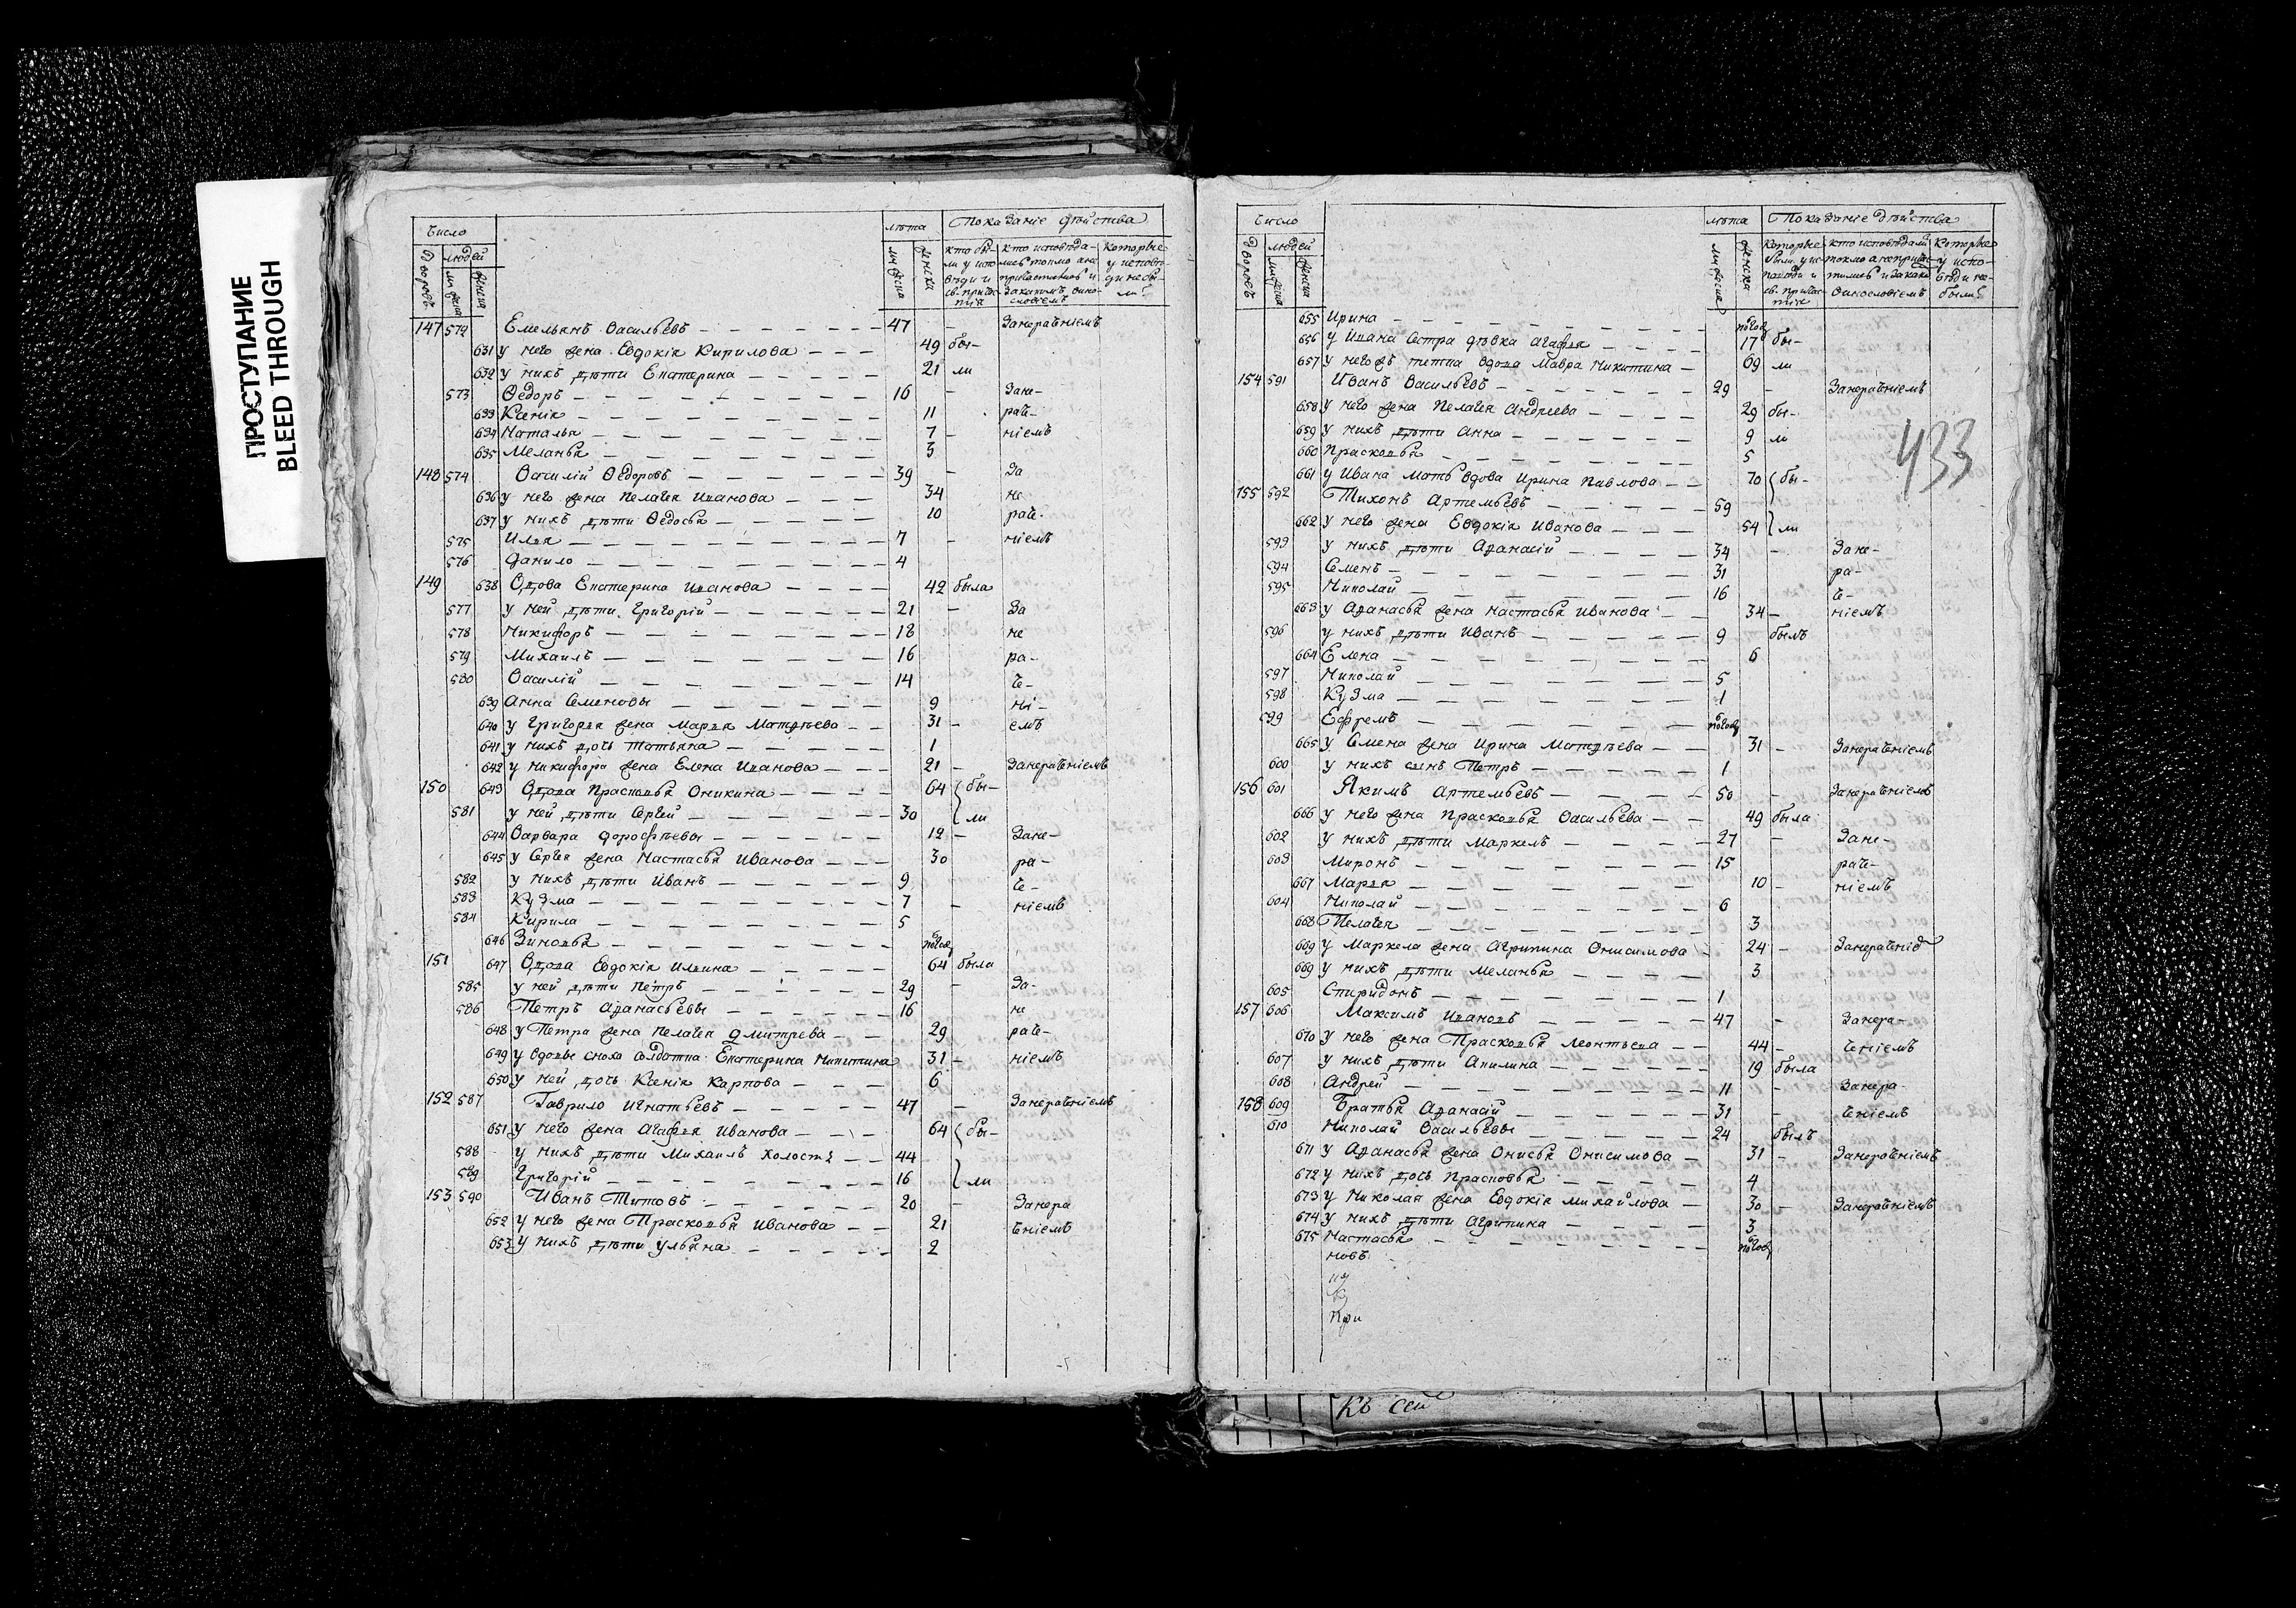 ПРОСТУПАНИЕ
BLEED THROUGH
Число лѣта Показаніе дѣйства
Дворовъ людей мужеска женска мужеска женска
147 572 Емельянъ Васильевъ 47 - Занерачѣніемъ
631 У него жена Евдокія Кирилова 49 бы-
632 У нихъ дѣти Екатерина 21 ли
573 Ѳедоръ 16 - Зане-
633 Ксенія 11 раче-
634 Наталья 7 - ніемъ
635 Меланья 3
148 574 Василій Ѳедоровъ 39 - За
636 У него жена Пелагея Иванова 34 не
637 У нихъ дѣти Ѳедосья 10 раче-
575 Илья 7 - ніемъ
576 Данило 4
149 638 Вдова Екатерина Иванова 42 была
577 У ней дѣти Григорій 21 - За
578 Никифоръ 18 не
579 Михаилъ 16 ра-
580 Василій 14 че-
639 Анна Семеновы 9 ні-
640 У Григорья жена Марья Матвѣева 31 - емъ
641 У нихъ дочь Татьяна 1
642 У Никифора жена Елена Иванова 21 - Занерачѣніемъ
150 643 Вдова Прасковья Оникина 64 бы-
581 У ней дѣти Сергей 30 ли
644 Варвара Дорофѣевы 12 - Зане-
645 У Сергея жена Настасья Иванова 30 ра-
582 У нихъ дѣти Иванъ 9 че-
583 Кузма 7 - ніемъ
584 Кирила 5
646 Зиновья полгода
151 647 Вдова Евдокія Ильина 64 была
585 У ней дѣти Петръ 29 - За-
586 Петръ Аѳанасьевы 16 не
648 У Петра жена Пелагея Дмитрева 29 раче-
649 У вдовы сноха солдатка Екатерина Никитина 31 - ніемъ
650 У ней дочь Ксенія Карпова 6
152 587 Гаврило Игнатьевъ 47 - Занерачѣніемъ
651 У него жена Агафья Иванова 64 бы-
588 У нихъ дѣти Михаилъ холостъ 44
589 Григорій 16 ли
153 590 Иванъ Титовъ 20 - Занера
652 У него жена Прасковья Иванова 21 чѣніемъ
653 У нихъ дѣти Ульяна 2
Число лѣта Показаніе дѣйства
Дворовъ людей мужеска женска мужеска женска
655 Ирина полгода
656 У Ивана сестра дѣвка Агафья 17 бы-
657 У негожъ тетка вдова Мавра Никитина 69 ли
154 591 Иванъ Васильевъ 29 - Занерачѣніемъ
658 У него жена Пелагея Андреева 29 бы-
659 У нихъ дѣти Анна 9 ли
660 Прасковья 5
661 У Ивана мать вдова Ирина Павлова 70 бы-
433
155 592 Тихонъ Артемьевъ 59
662 У него жена Евдокія Иванова 54 ли
593 У нихъ дѣти Аѳанасій 34 - Зане-
594 Семенъ 31 ра-
595 Николай 16 че-
663 У Аѳанасья жена Настасья Иванова 34 - ніемъ
596 У нихъ дѣти Иванъ 9 былъ
664 Елена 6
597 Николай 5
598 Кузма 1
599 Ефремъ полгода
665 У Семена жена Ирина Матвѣева 31 - Занерачѣніемъ
600 У нихъ сынъ Петръ 1
156 601 Якимъ Артемьевъ 50 - Занерачѣніемъ
666 У него жена Прасковья Васильева 49 была
602 У нихъ дѣти Маркелъ 27 - Зане-
603 Миронъ 15 раче-
667 Марья 10 - ніемъ
604 Николай 6
668 Пелагея 3
669 У Маркела жена Агрипина Онисимова 24 - Занерачѣніе
669 У нихъ дѣти Меланья 3
605 Спиридонъ 1
157 606 Максимъ Ивановъ 47 - Занера-
670 У него жена Прасковья Леонтьева 44 - ченіемъ
607 У нихъ дѣти Акилина 19 была
608 Андрей 11 - Занера-
158 609 Братья Аѳанасій 31 - ченіемъ
610 Николай Васильевы 24 былъ
671 У Аѳанасья жена Онисья Онисимова 31 - Занерачѣніемъ
672 У нихъ дочь Прасковья 4
673 У Николая жена Евдокія Михайлова 30 - Занерачѣніемъ
674 У нихъ дѣти Агрипина 3
675 Настасья полгода
новъ
при
Къ сей